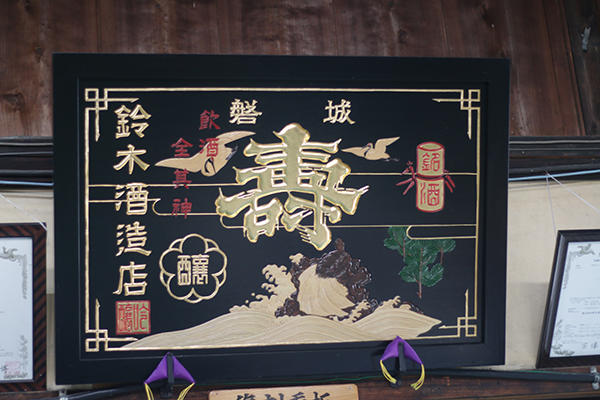 磐城
壽
鈴木酒造店
飲酒
全其神
銘酒
醸